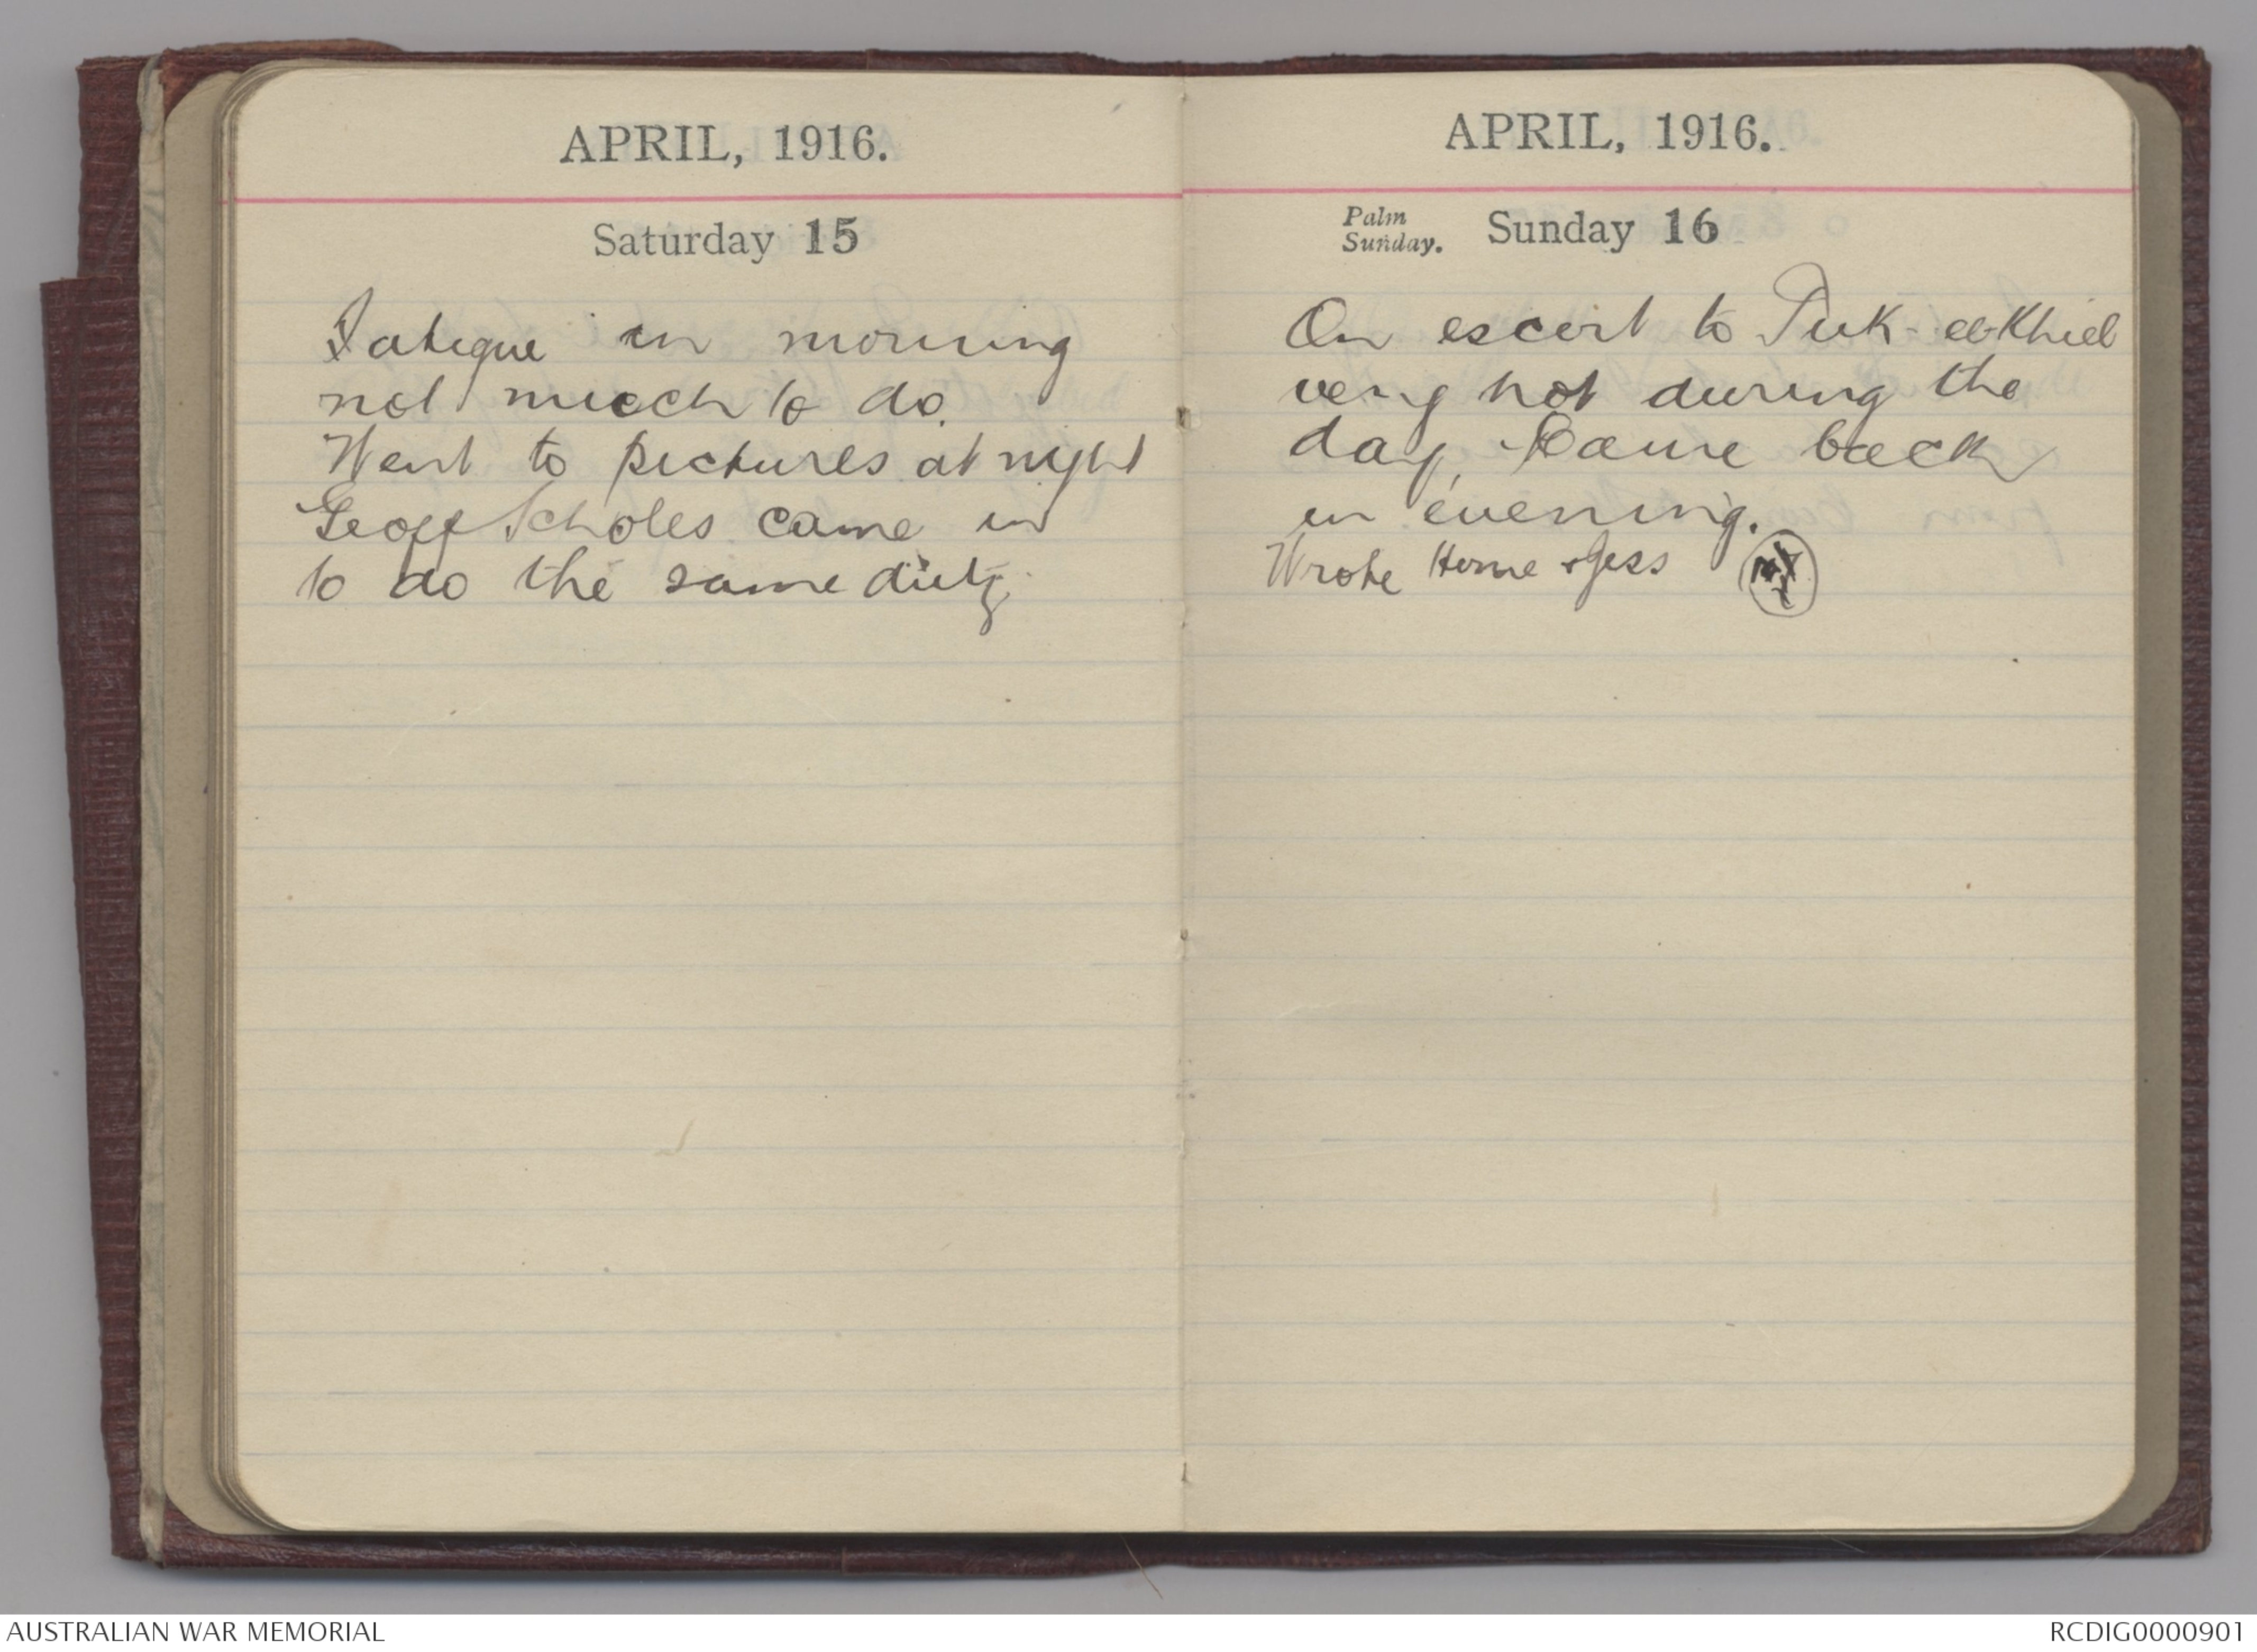 APRIL, 1916.
Saturday 15
Fatigue in morning
not much to do.
Went to pictures at night
Geoff Scholes came in
to do the same duty.
APRIL, 1916.
Palm Sunday. Sunday 16
On escort to Tuk-el-Khiel
very hot during the
day, Came back
in evening.
Wrote Home & Jess
AUSTRALIAN WAR MEMORIAL
RCDIG0000901